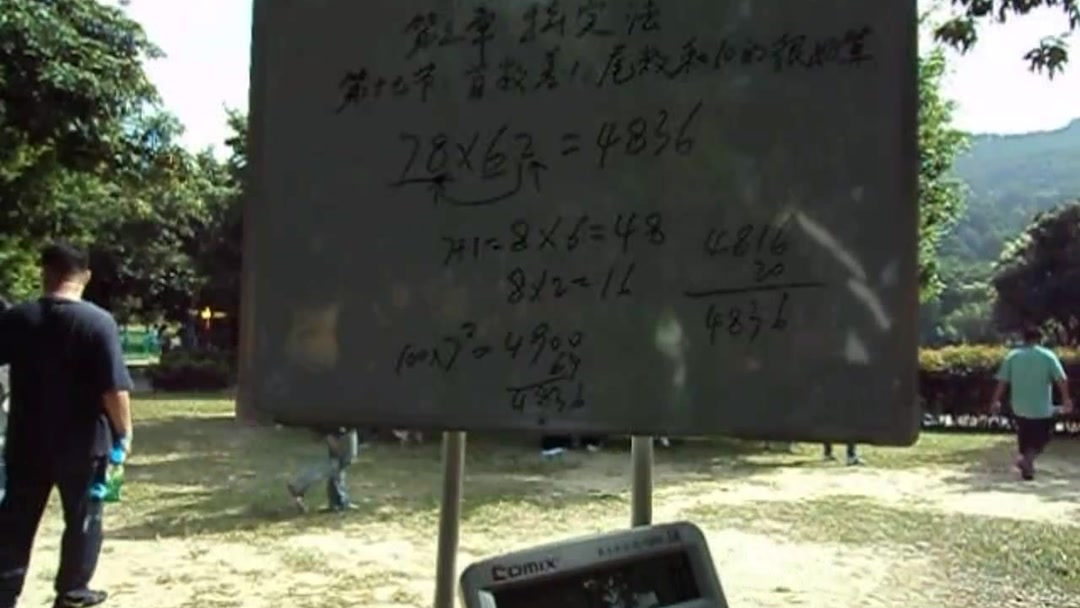 第三章 指定法
第十七节 首数差1,尾数和10的
78×62=4836
7+1=8×6=48
8×2=16
4816
20
4836
100×7²=4900
64
4836
Comix